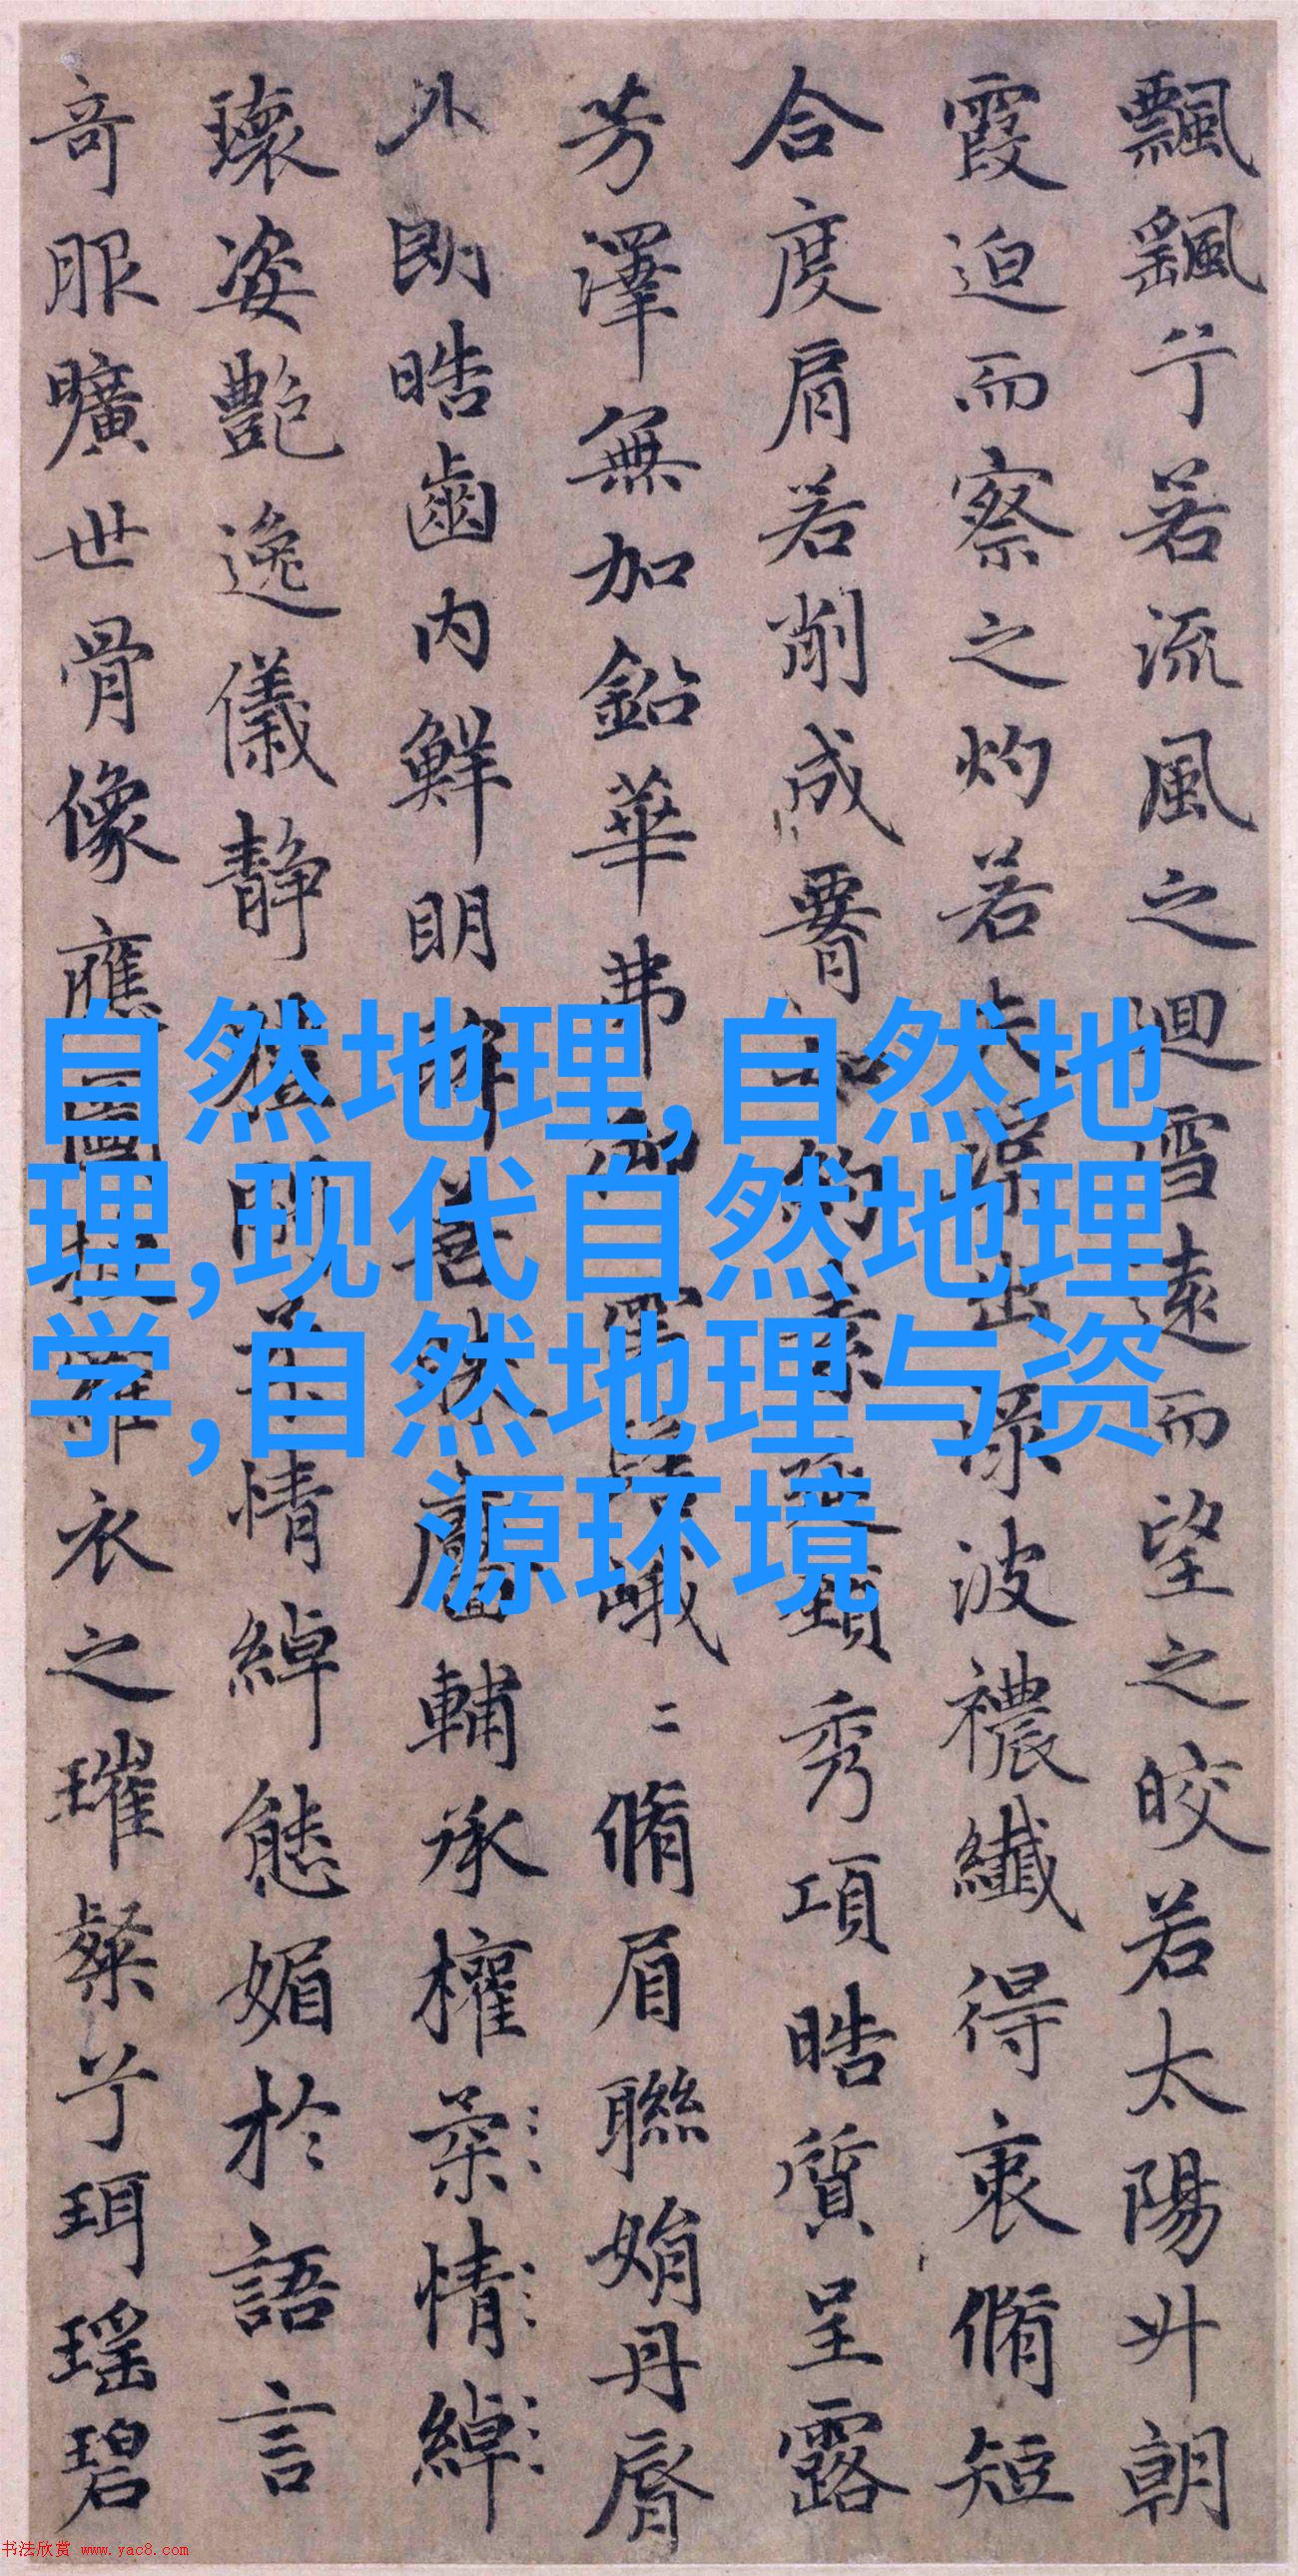 飄颻兮若流風之迴雪遠而望之皎若太陽升朝
霞迫而察之灼若夫渠出淥波襛纖得衷脩短
合度肩若削成𦝫如約素延頸秀項皓質呈露
芳澤無加鉛華弗御雲髻峨二脩眉聯娟丹脣
外朗皓齒内鮮明眸善睞靨輔承權柔情綽
瓌姿艷逸儀靜體閑柔情綽態媚於語言
奇服曠世骨像應圖披羅衣之璀粲兮珥瑤碧
自然地理,自然地
理,现代自然地理
学,自然地理与资
源环境
书法欣赏 www.yac8.com